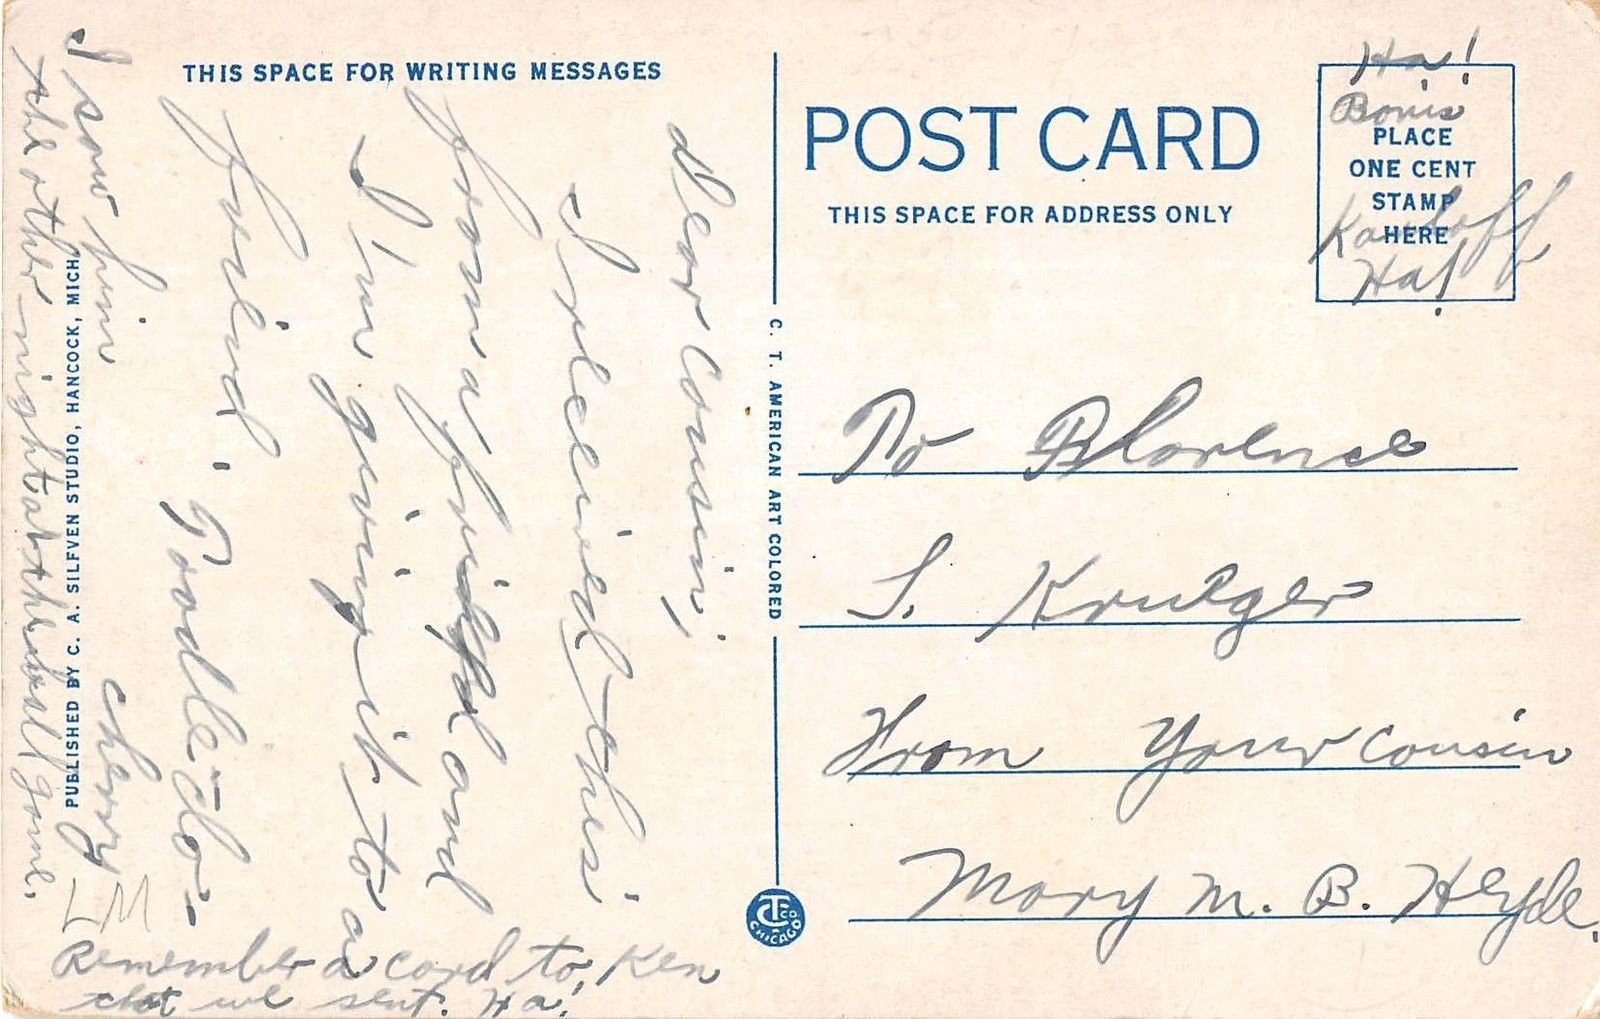 THIS SPACE FOR WRITING MESSAGES
Dear Cousin,
I recieved this
from a friend and
I'm giving it to a
freind. Toodle-do-
cherry
I saw him
the other night at the ball game.
LM
Remember a card to, Ken
that we sent. Ha!
PUBLISHED BY C. A. SILFVEN STUDIO, HANCOCK, MICH.
C. T. AMERICAN ART COLORED
CTCO
CHICAGO
POST CARD
THIS SPACE FOR ADDRESS ONLY
Ha!
Boris
PLACE
ONE CENT
STAMP
HERE
Karloff
Ha!
To Florence
S. Krueger
From Your Cousin
Mary M. B. Heyde.